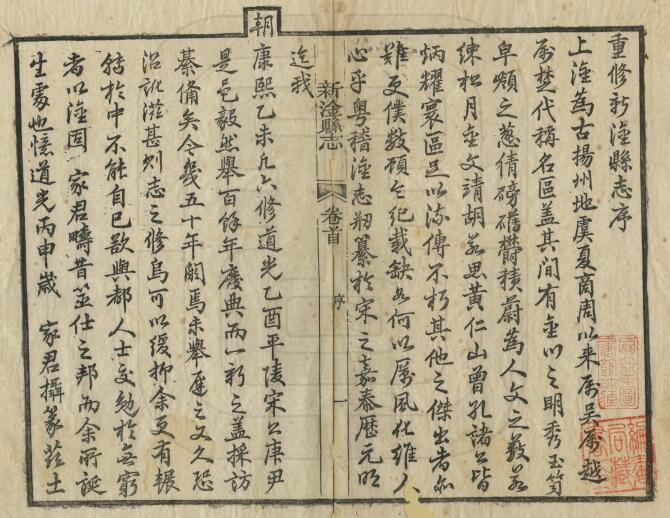 重修新淦縣志序
上淦為古揚州地虞夏商周以来属吳属越
属楚代稱名區盖其间有金川之明秀玉笥
阜頫之葱倩磅礴欝積蔚為人文之薮若
練松月金文靖胡若思黄仁山曾孔諸公皆
炳耀寰區足以流傳不朽其他之傑出者亦
難更僕数碩令纪載缺如何以厲风化維人
心乎粤稽淦志剏纂於宋之嘉泰歷元明
迄我
新淦縣志
卷首
序
一
朝
康熙乙未凡六修道光乙酉平陵宋公庚尹
是邑毅然舉百餘年廢典而一新之盖採访
綦備矣今幾五十年闕焉未舉歷之又久恐
沿訛滋甚则志之修烏可以缓抑余更有輾
转於中不能自已欲與都人士交勉於无窮
者以淦固 家君疇昔筮仕之邦而余所诞
生處也憶道光丙申歲 家君攝篆茲土